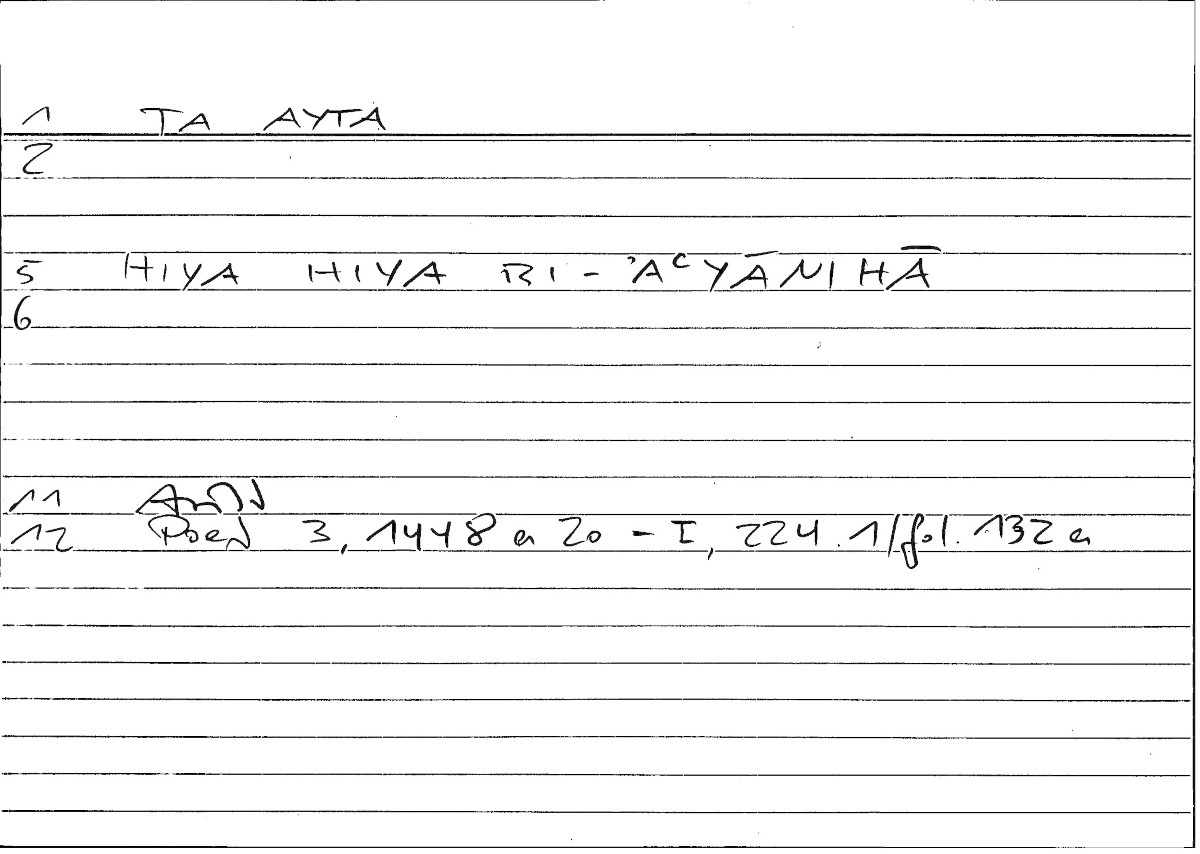 1 TA AYTA
2
5 HIYA HIYA BI-ʾAʿYĀNIHĀ
6
11
12 Poet 3, 1448 a 20 - I, 224.1/fol. 132 a